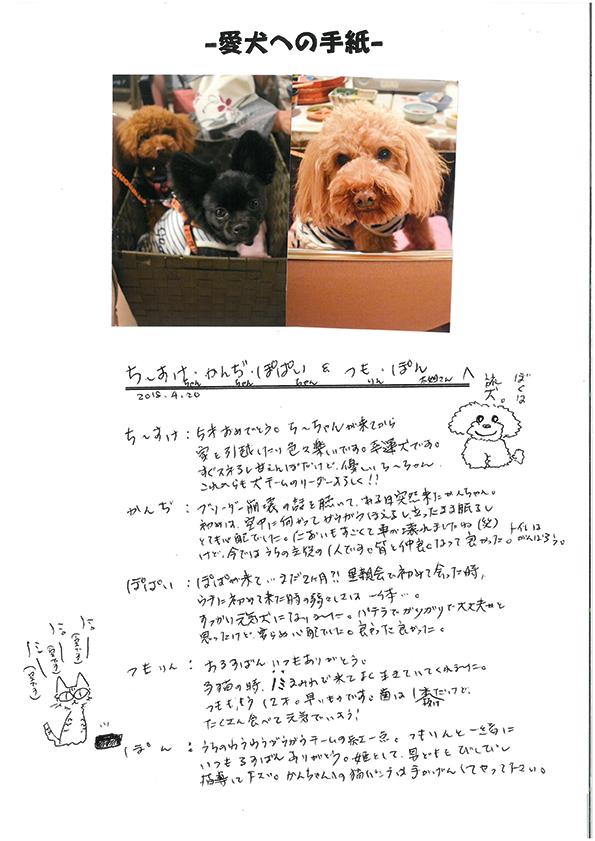 -愛犬への手紙-
ち〜すけちゃん・かんぢちゃん・ぽぱいちゃん & つもりん・ぽん へ
2018.4.20
ぼくは
犬。
ち〜すけ：5才おめでとう。ち〜ちゃんが来てから
家を引越したり色々楽しいです。幸運犬です。
すぐスネるし甘えんぼだけど、優しいち〜ちゃん。
これからも犬チームのリーダーよろしく!!
かんぢ：ブリーダー崩壊の話を聴いて、ある日突然来たかんちゃん。
初めは、空中に向かってガウガウほえるし立ったまま眠るし
とても心配でした。においもすごくて車が壊れましたね(笑)
けど、今ではうちの主役の1人です。皆と仲良くなって良かった。トイレはがんばろう。
ぽぱい：ぽぱが来て…まだ2ヶ月?! 里親会で初めて会った時、
ウチに初めて来た時の弱々しさは一体…。
すっかり元気犬になりました。パテラでガリガリで大丈夫かと
思ったけど、心配でした。良かった良かった。
つもりん：おるすばんいつもありがとう。
子猫の時、ノミまみれで来てよく生きていてくれました。
つももう12才。早いものです。歯は1本だけど、
たくさん食べて元気でいよう!
ぽん：うちのわうわうガウガウチームの紅一点。つもりんと一緒に
いつもるすばんありがとう。姫として、男どもをびしびし
指導して下さい。かんちゃんへの猫パンチは手かげんしてやって下さい。